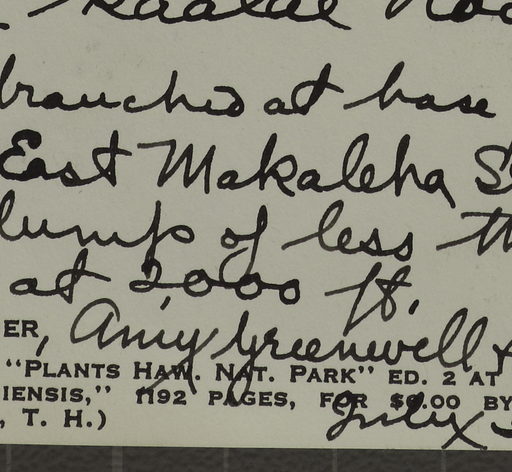 Kaalae Road
branched at base
East Makaleha
lump of less th
at 2,000 ft.
ER, Amy Greenwell &
"PLANTS HAW. NAT. PARK" ED. 2 AT
IENSIS," 1192 PAGES, FOR $6.00 BY
, T. H.)